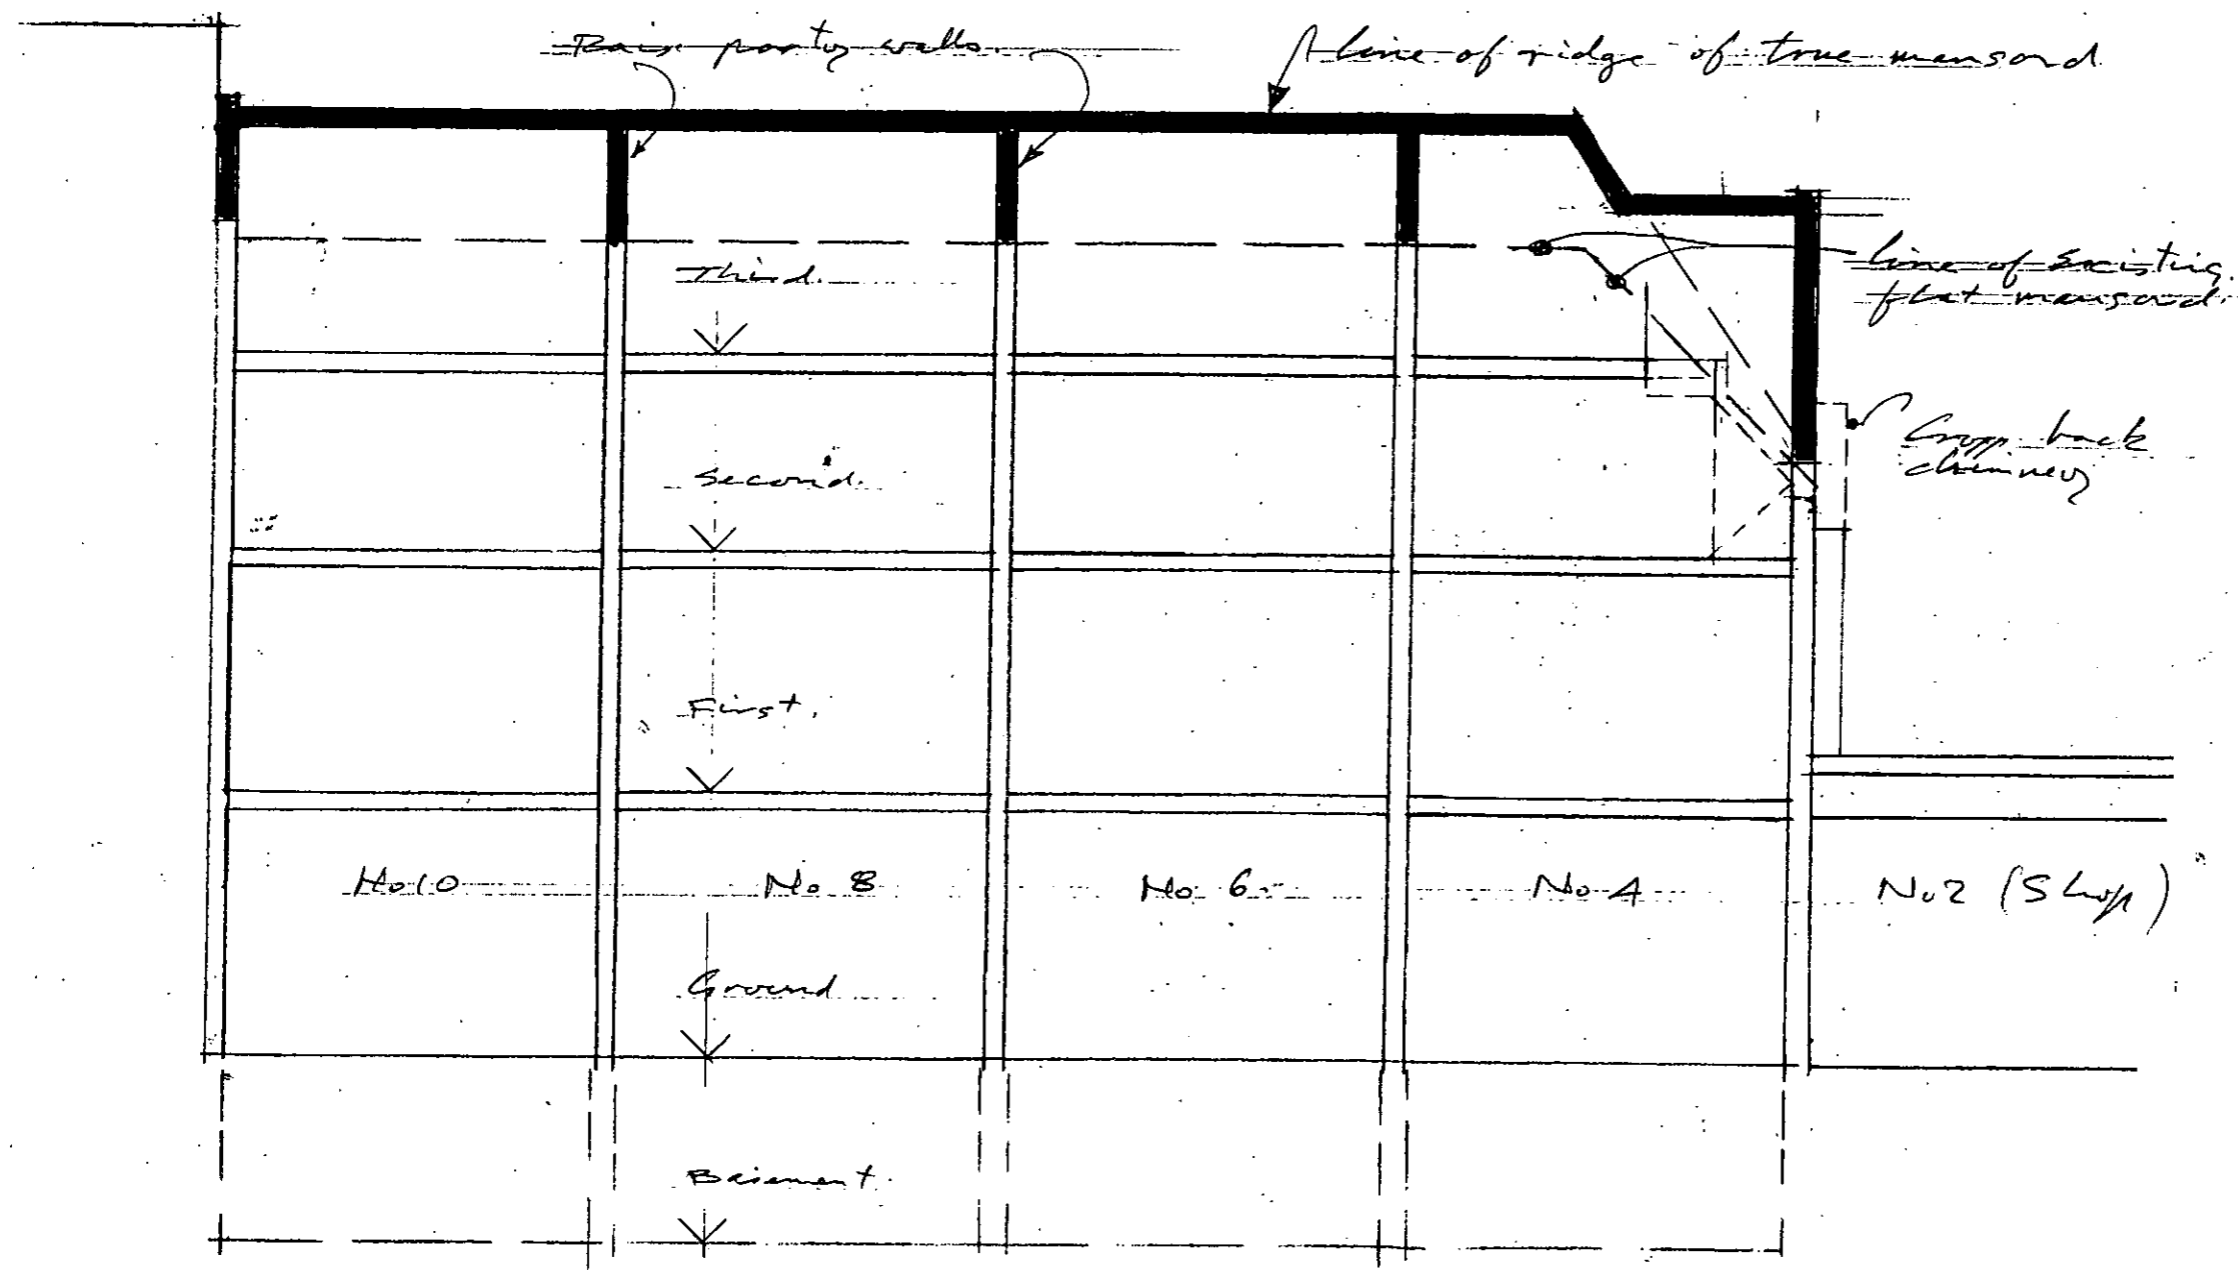 Raise party walls.
line of ridge of true mansard
line of existing
flat mansard.
Third.
Crop back
chimney
Second.
First.
No 10
No 8
No 6
No 4
No 2 (Shop)
Ground
Basement.